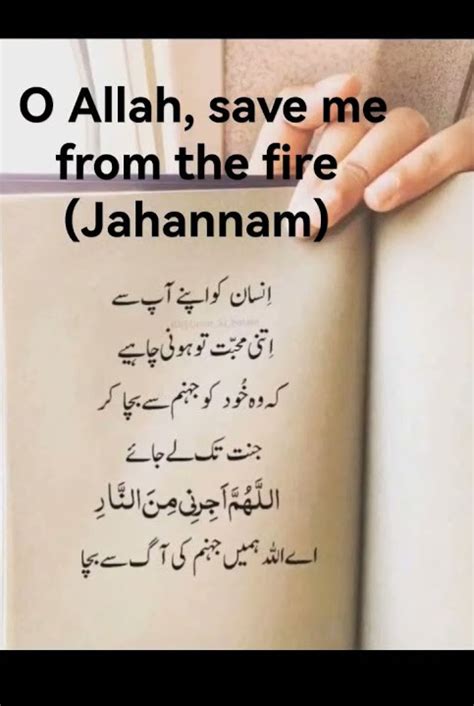 O Allah, save me
from the fire
(Jahannam)
اِنسان کو اپنے آپ سے
اِتنی محبّت تو ہونی چاہیے
کہ وہ خُود کو جہنم سے بچا کر
جنت تک لے جائے
اللَّهُمَّ أَجِرْنِي مِنَ النَّارِ
اے اللہ ہمیں جہنم کی آگ سے بچا